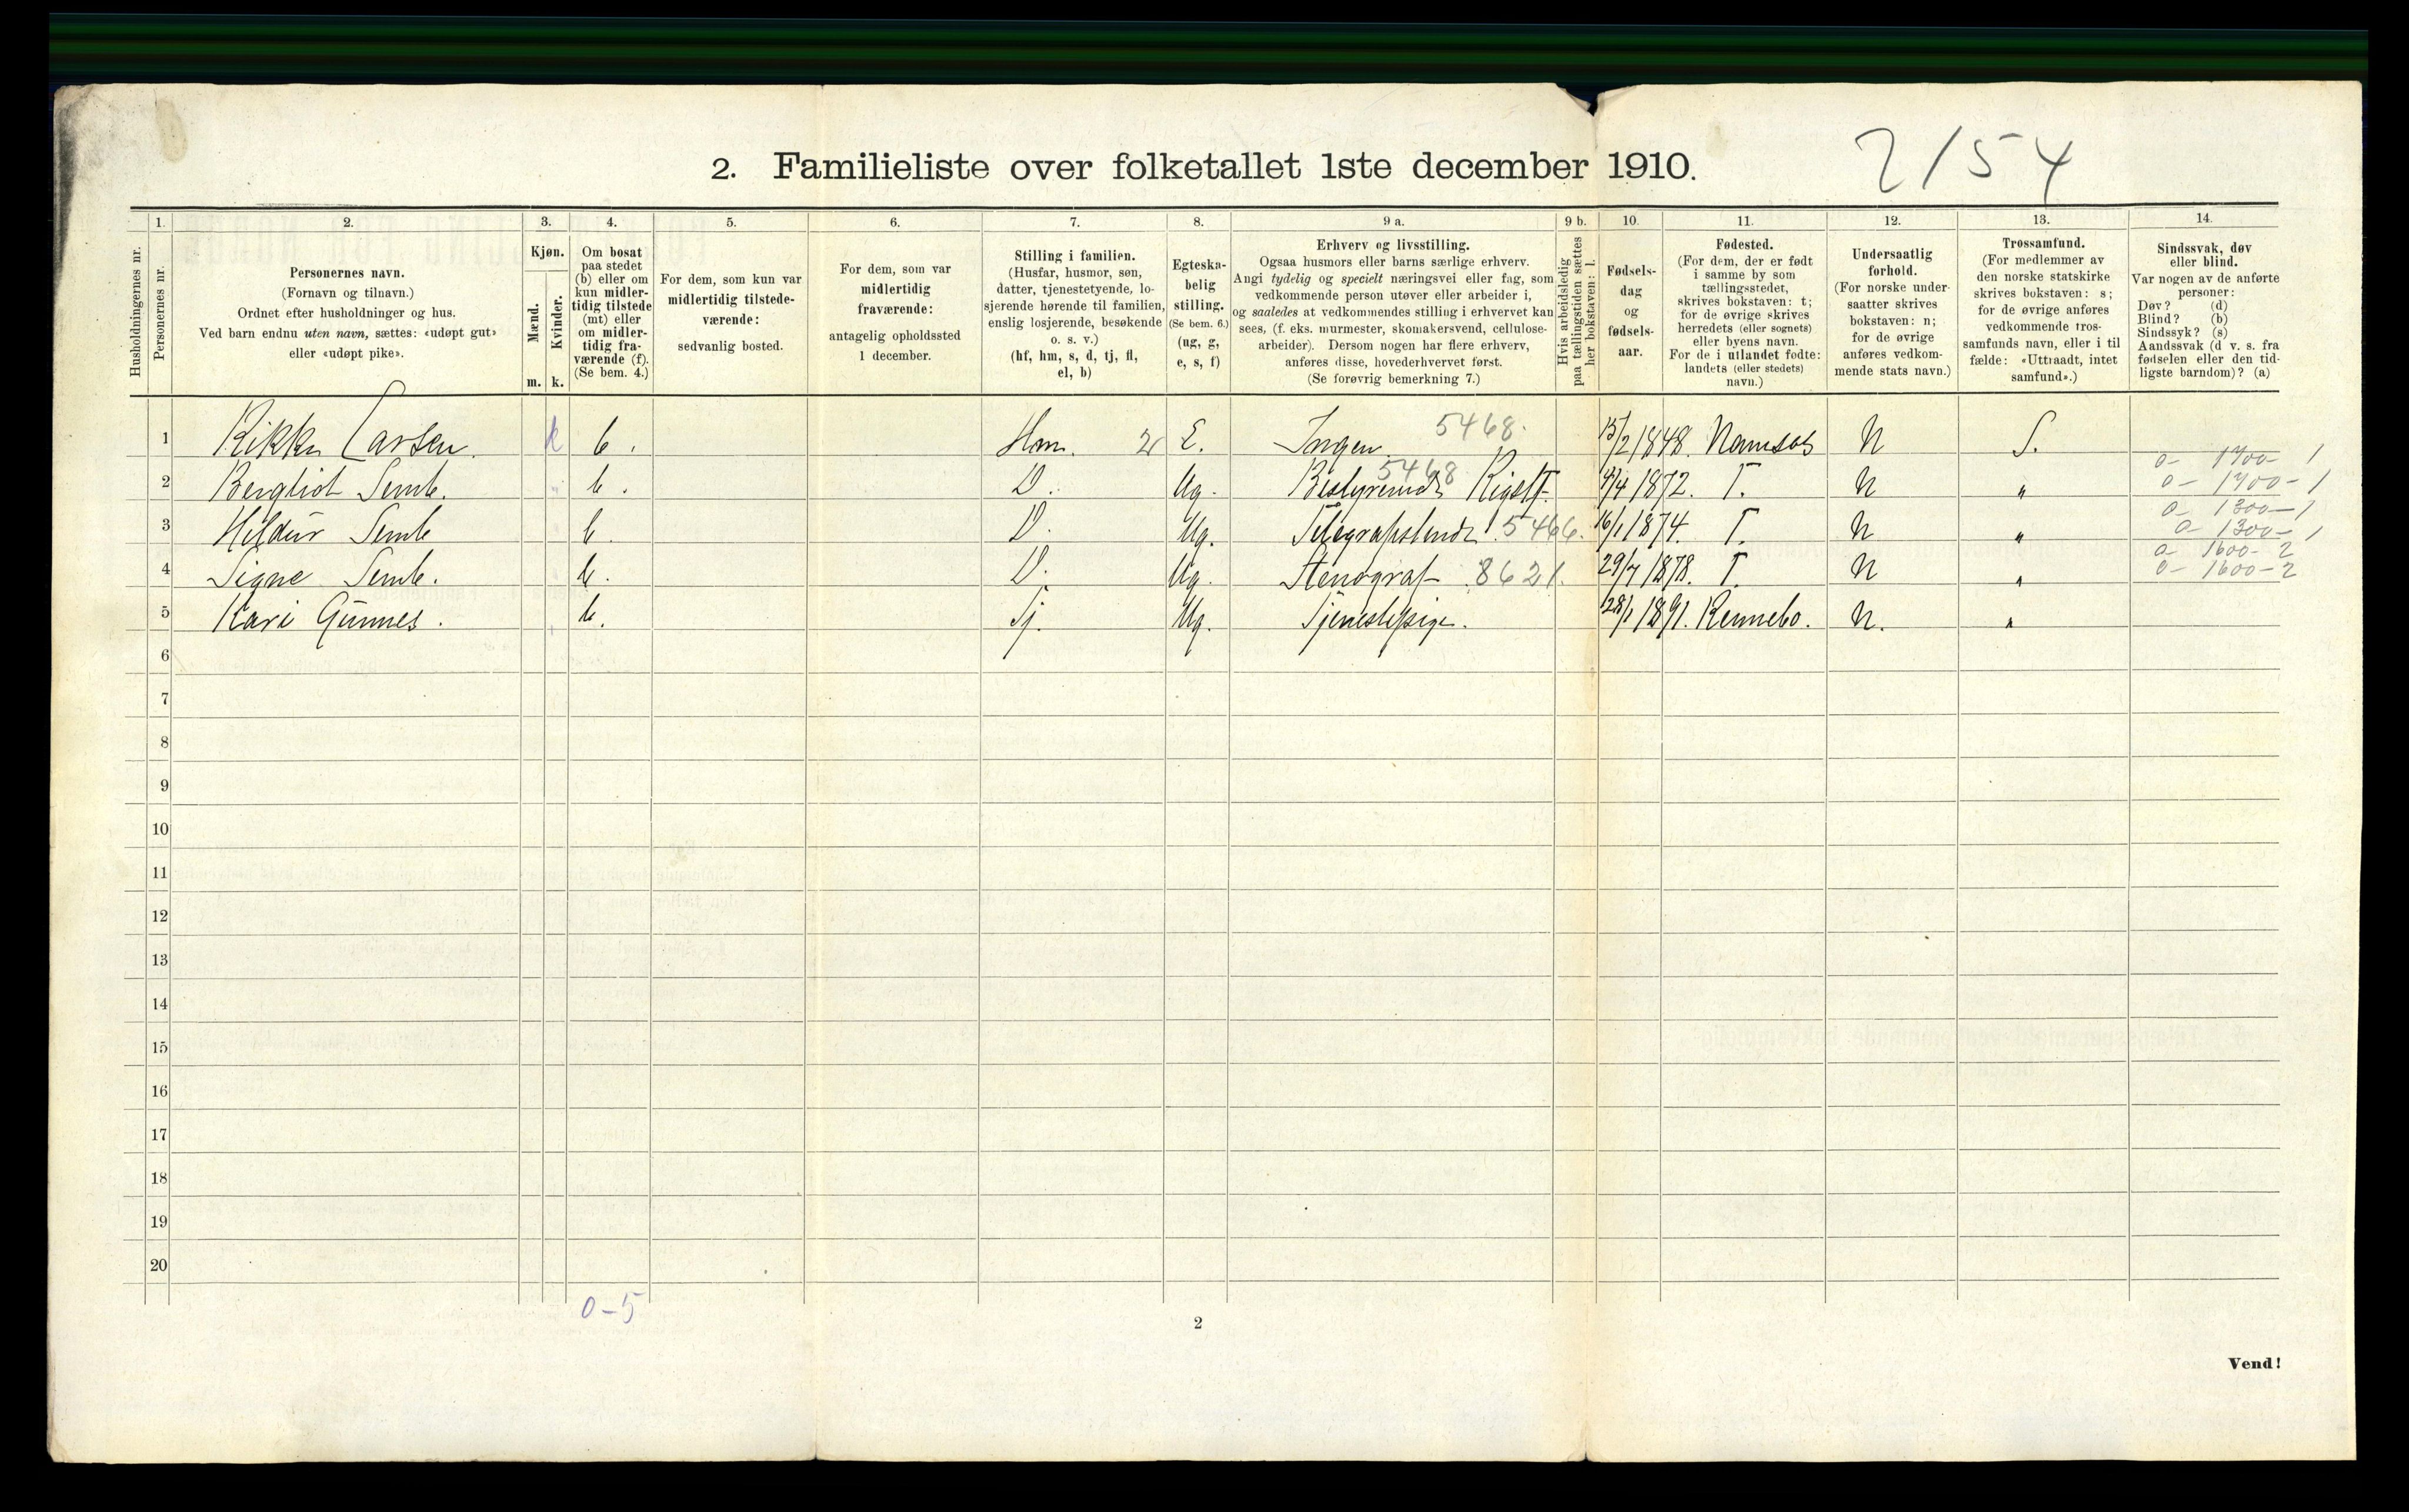 2. Familieliste over folketallet 1ste december 1910.
2154
1. 2. 3. 4. 5. 6. 7. 8. 9 a. 9 b. 10. 11. 12. 13. 14.
Husholdningernes nr.
Personernes nr.
Personernes navn.
(Fornavn og tilnavn.)
Ordnet efter husholdninger og hus.
Ved barn endnu uten navn, sættes: «udøpt gut»
eller «udøpt pike».
Kjøn.
Mænd.
Kvinder.
m. k.
Om bosat
paa stedet
(b) eller om
kun midler-
tidig tilstede
(mt) eller
om midler-
tidig fra-
værende (f).
(Se bem. 4.)
For dem, som kun var
midlertidig tilstede-
værende:
sedvanlig bosted.
For dem, som var
midlertidig
fraværende:
antagelig opholdssted
1 december.
Stilling i familien.
(Husfar, husmor, søn,
datter, tjenestetyende, lo-
sjerende hørende til familien,
enslig losjerende, besøkende
o. s. v.)
(hf, hm, s, d, tj, fl,
el, b)
Egteska-
belig
stilling.
(Se bem. 6.)
(ug, g,
e, s, f)
Erhverv og livsstilling.
Ogsaa husmors eller barns særlige erhverv.
Angi tydelig og specielt næringsvei eller fag, som
vedkommende person utøver eller arbeider i,
og saaledes at vedkommendes stilling i erhvervet kan
sees, (f. eks. murmester, skomakersvend, cellulose-
arbeider). Dersom nogen har flere erhverv,
anføres disse, hovederhvervet først.
(Se forøvrig bemerkning 7.)
Hvis arbeidsledig
paa tællingstiden sættes
her bokstaven: l.
Fødsels-
dag
og
fødsels-
aar.
Fødested.
(For dem, der er født
i samme by som
tællingsstedet,
skrives bokstaven: t;
for de øvrige skrives
herredets (eller sognets)
eller byens navn.
For de i utlandet fødte:
landets (eller stedets)
navn.)
Undersaatlig
forhold.
(For norske under-
saatter skrives
bokstaven: n;
for de øvrige
anføres vedkom-
mende stats navn.)
Trossamfund.
(For medlemmer av
den norske statskirke
skrives bokstaven: s;
for de øvrige anføres
vedkommende tros-
samfunds navn, eller i til
fælde: «Uttraadt, intet
samfund».)
Sindssvak, døv
eller blind.
Var nogen av de anførte
personer:
Døv? (d)
Blind? (b)
Sindssyk? (s)
Aandssvak (d v. s. fra
fødselen eller den tid-
ligste barndom)? (a)
1 Rikke Larsen. k b. Hm. 2 E. Ingen 5468. 15/2 1848. Namsos N S.
0- 1700- 1
2 Bergliot Semb. b. D. Ug. Bestyrerinde Rigstf. 5468 /4 1872. T. N " 0- 1700- 1
0- 1300- 1
3 Hildur Semb b. D. Ug. 5466. 16/1 1874. T. N " 0- 1300- 1
0- 1600- 2
4 Signe Semb. b. D. Ug. Stenograf 8621. 29/7 1878. T. N " 0- 1600- 2
5 Kari Gunnes. b. Tj. Ug. Tjenestepige. 28/1 1891. Rennebo. N. "
6
7
8
9
10
11
12
13
14
15
16
17
18
19
20
0-5
2
Vend!